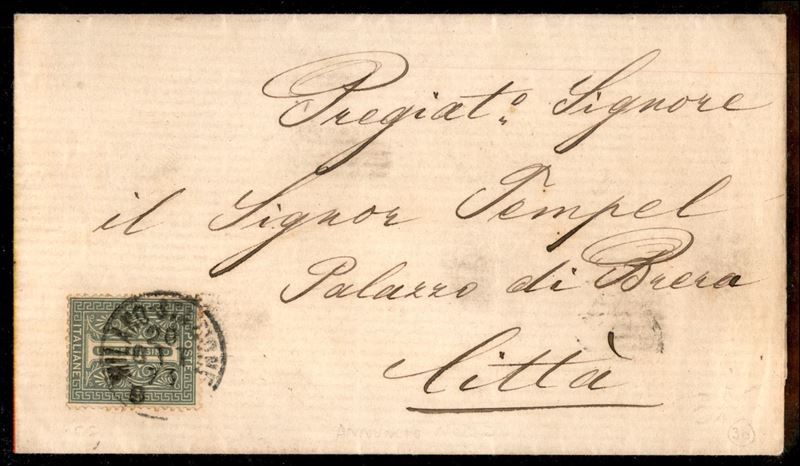 Pregiat.º Signore
il Signor Tempel
Palazzo di Brera
Città
POSTE
ITALIANE
1
MILANO STAZIONE
Annuncio